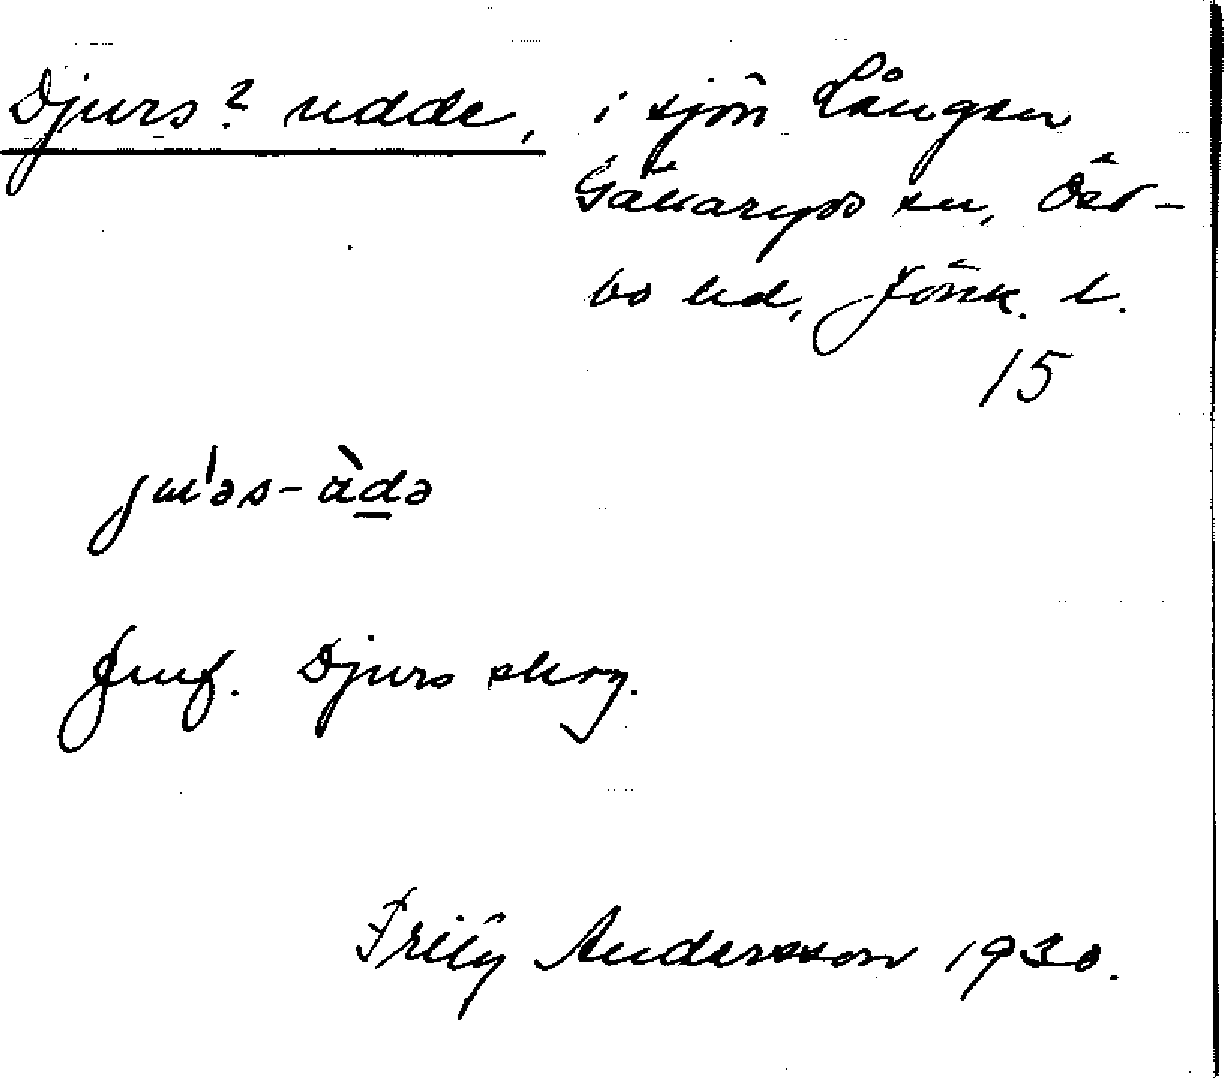 Djurs? udde, i sjön Långsen
Gällaryds sn, Öst-
bo hd, Jönk. l.
15
Jmf. Djurs skog.
Andersson 1930.